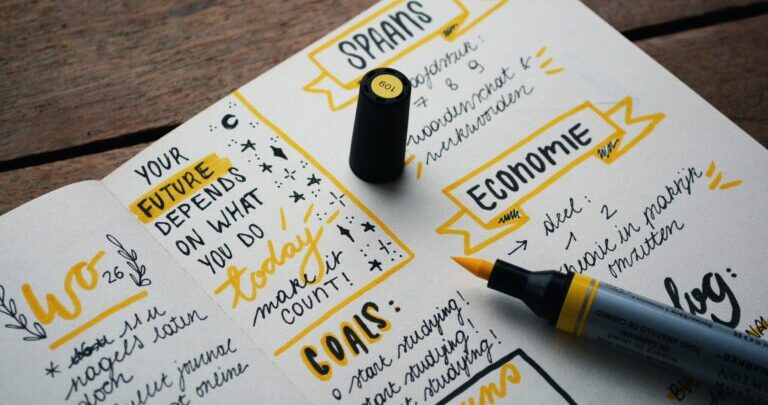 wo
26
* 11 u
nagels laten
doch
bullet journal
online
YOUR
FUTURE
DEPENDS
ON WHAT
YOU DO
today
make it
COUNT!
GOALS:
o start studying!
start studying!
start studying!
SPAANS
hoofdstuk:
7 8 9
woordenschat &
werkwoorden
ECONOMIE
→ deel:
1 2
theorie in praktijk
omzetten
log:
109